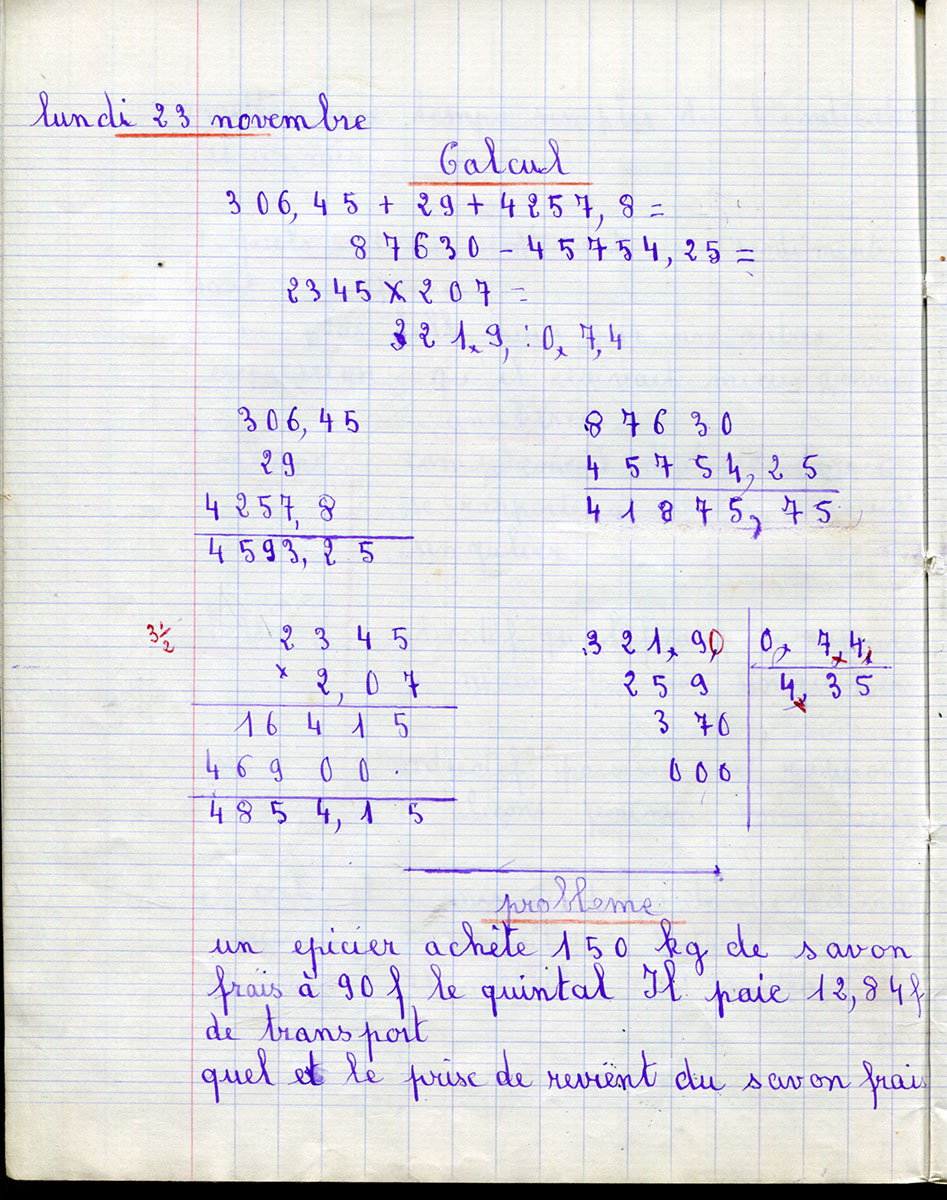 lundi 23 novembre
Calcul
306,45 + 29 + 4257,8 =
87630 - 45754,25 =
2345 x 207 =
321,9, : 0,7,4
306,45
29
4257,8
4593,25
87630
45754,25
41875,75
3 1/2
2345
x 2,07
16415
46900.
4854,15
321,90
259
370
000
0,7,4,
4,35
probleme
un epicier achète 150 kg de savon
frais à 90 f le quintal Il paie 12,84 f
de transport
quel et le prise de revient du savon frais